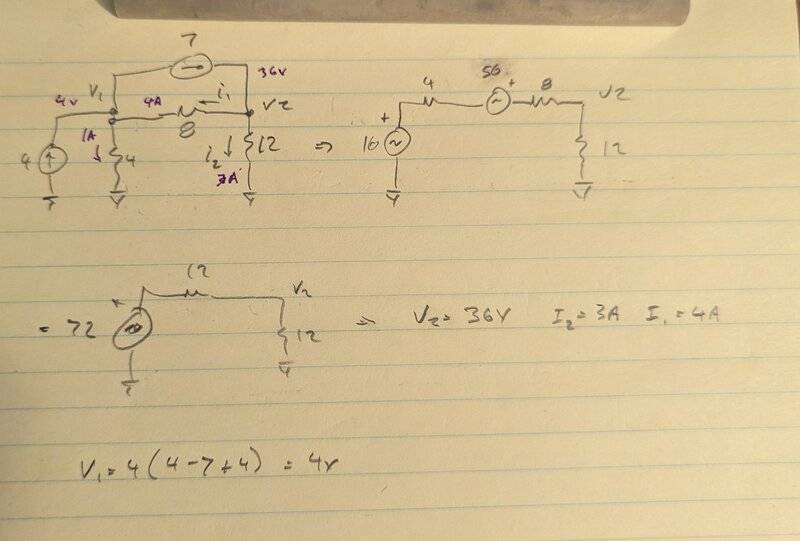 7
36v
V₁ 4v 4A i₁ V2
1A 8
4 4 i₂ 12
3A
⇒
4 56 + 8 V2
+
16 12
12 V₂
+
= 72 12 ⇒ V₂= 36V I₂=3A I₁=4A
V₁= 4(4-7+4) = 4v